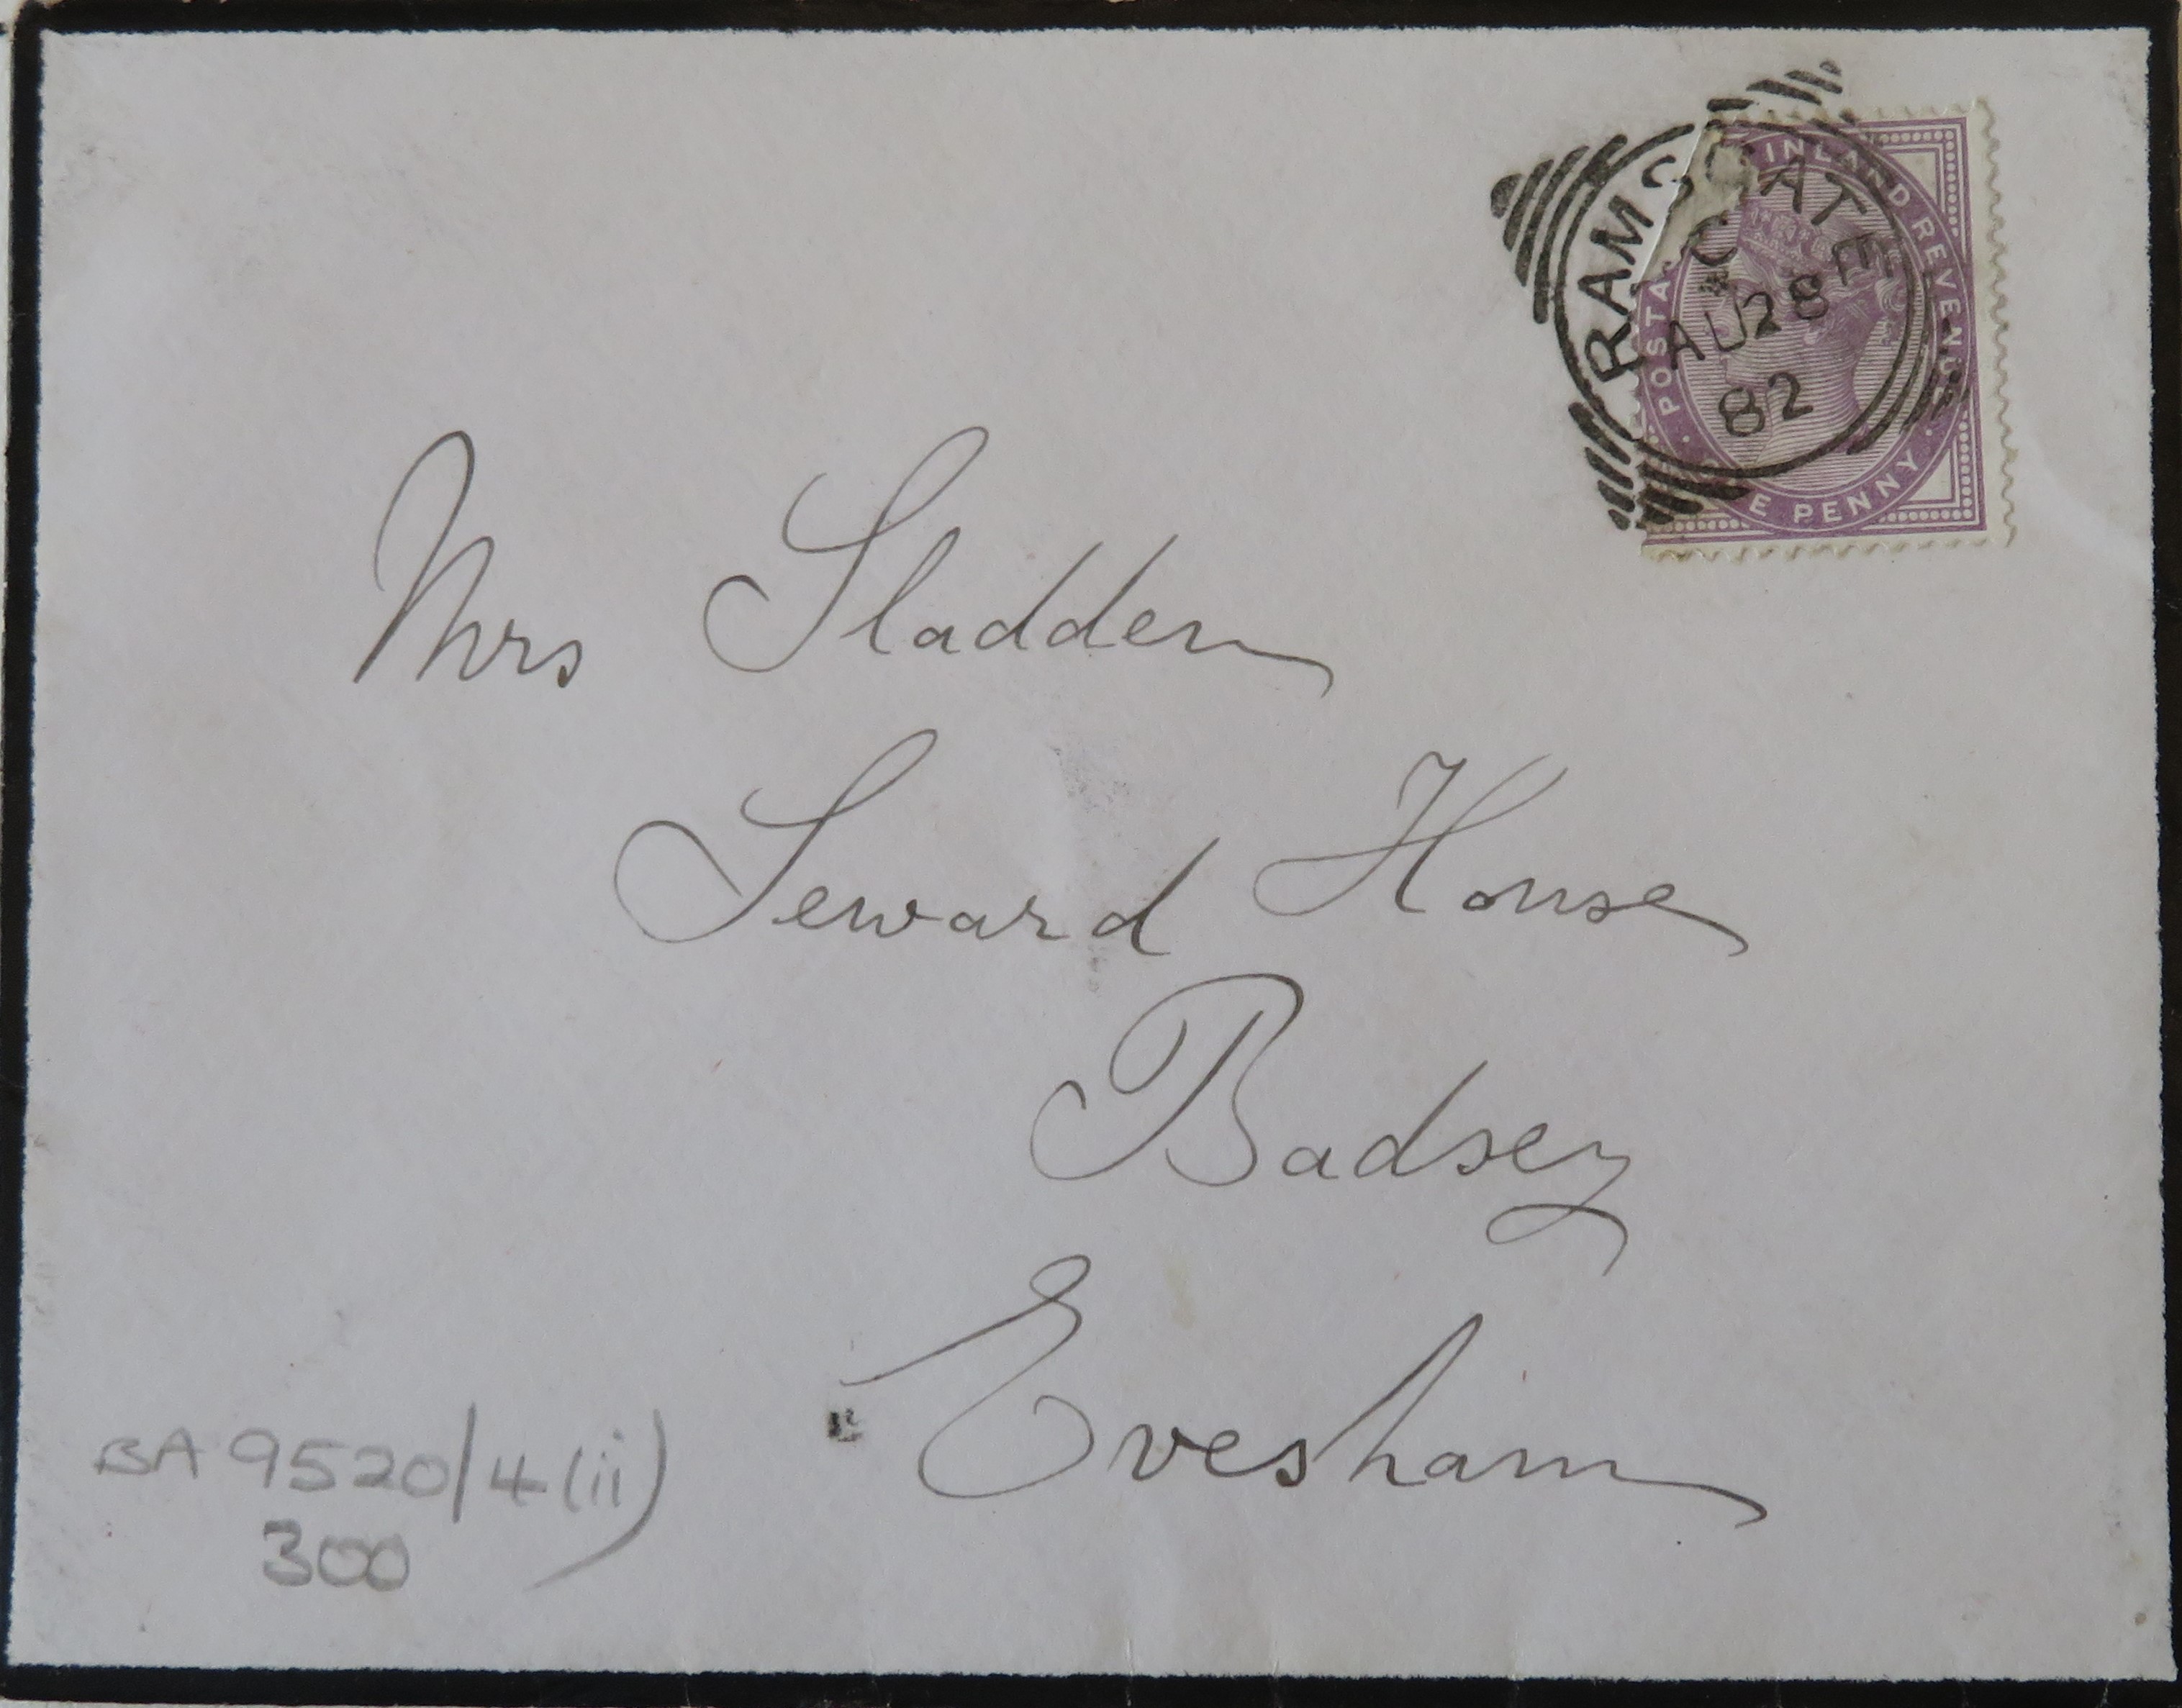 RAMSGATE
C
AU 28
82
POSTAGE INLAND REVENUE
ONE PENNY
Mrs Sladden
Seward House
Badsey
Evesham
BA 9520/4 (ii)
300